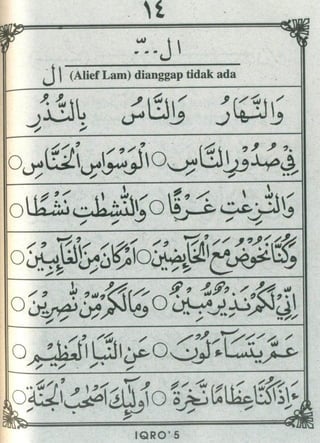 ١٤
ال ـّـ
ال (Alief Lam) dianggap tidak ada
وَالنَّهَارُ وَالنَّاسُ بِالنُّذُرِ
فِيْ صُدُوْرِ النَّاسِ ○ الْوَسْوَاسِ الْخَنَّاسِ ○
وَالنّٰزِعٰتِ غَرْقًا ○ وَالنّٰشِطٰتِ نَشْطًا ○
وَكُنَّا نَخُوْضُ مَعَ الْخَآئِضِيْنَ ○ اَمْ كَانَ مِنَ الْغَآئِبِيْنَ ○
اِنِّيْ لَكُمْ نَذِيْرٌ مُّبِيْنٌ ○ وَمَا لَكُمْ مِّنْ نّٰصِرِيْنَ ○
عَمَّ يَتَسَآءَلُوْنَ ○ عَنِ النَّبَاِ الْعَظِيْمِ ○
ءَاِذَا كُنَّا عِظَامًا نَّخِرَةً ○ اُولٰٓئِكَ اَصْحٰبُ الْجَنَّةِ ○
IQRO'5